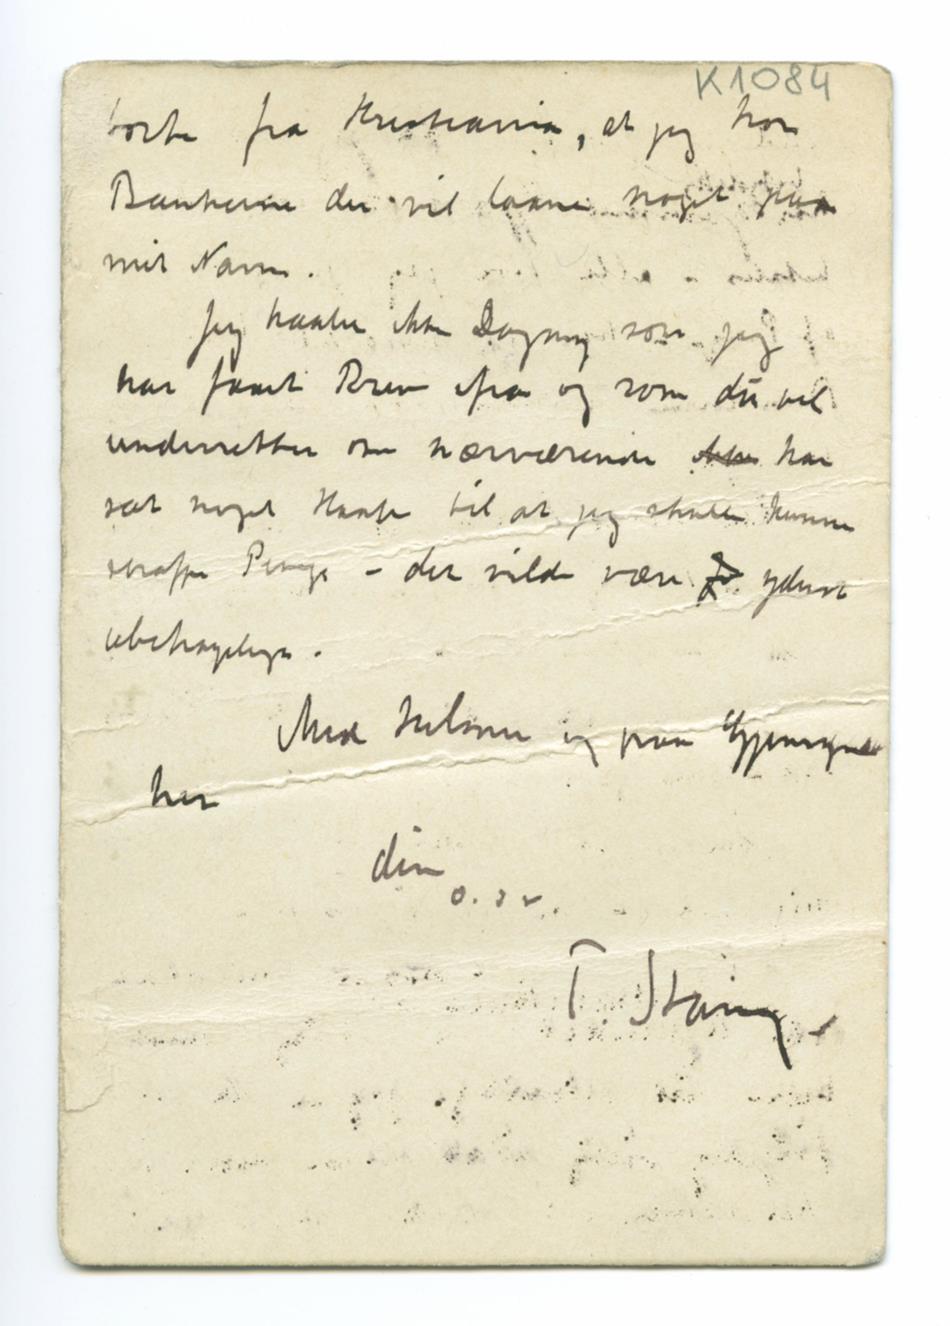 K1084
borte fra Kristiania, at jeg tror
Bankerne der vil laane noget paa
mit Navn.
Jeg haaber ikke Dagny som jeg
har faaet Brev ifra og som du vel
underretter om nærværende har
sat noget Haab til at jeg skulde kunne
skaffe Penge – det vilde være yderst
ubehageligt.
Med Hilsner og paa Gjensyn
her
din
T. Stang